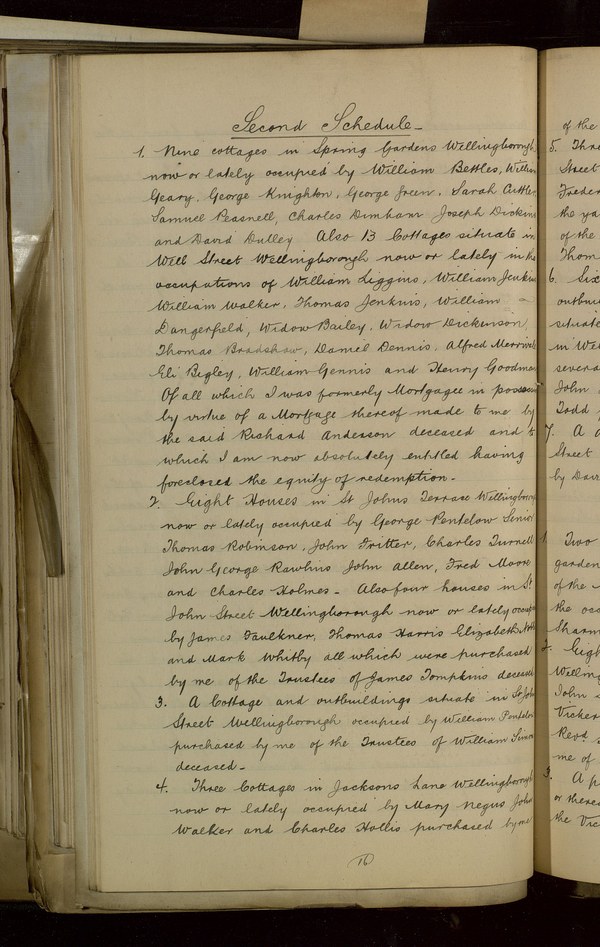 Second Schedule
1. Nine cottages in Spring Gardens Wellingborough
now or lately occupied by William Bettles, William
Geary, George Knighton, George Green, Sarah
Samuel Peasnell, Charles Dunham Joseph Dickins
and David Dulley Also 13 Cottages situate in
Well Street Wellingborough now or lately in the
occupations of William Liggins, William Jenkins
William Walker, Thomas Jenkins, William
Dangerfield, Widow Bailey, Widow Dickinson,
Thomas Bradshaw, Daniel Dennis, Alfred
Eli Bigley, William Gennis and Henry Goodman
Of all which I was formerly Mortgagee in
by virtue of a Mortgage thereof made to me by
the said Richard Anderson deceased and to
which I am now absolutely entitled having
foreclosed the equity of redemption -
2. Eight Houses in St Johns Terrace Wellingboro
now or lately occupied by George Pentelow Senior
Thomas Robinson, John Tritter, Charles Turnell
John George Rawlins John Allen, Fred Moore
and Charles Holmes - Also four houses in St
John Street Wellingborough now or lately
by James Faulkner, Thomas Harris Elizabeth
and Mark Whitby all which were purchased
by me of the Trustees of James Tompkins deceased
3. A Cottage and outbuildings situate in St John
Street Wellingborough occupied by William Pentelow
purchased by me of the Trustees of William
deceased -
4. Three Cottages in Jacksons Lane Wellingborough
now or lately occupied by Mary Negus John
Walker and Charles Hollis purchased by me
16
of the
5.
Street
the
of the
6. Six
situate
in
John
Todd
7. A
Street
by
1 Two
garden
of the
the
2.
John
me of
3. A
or
the